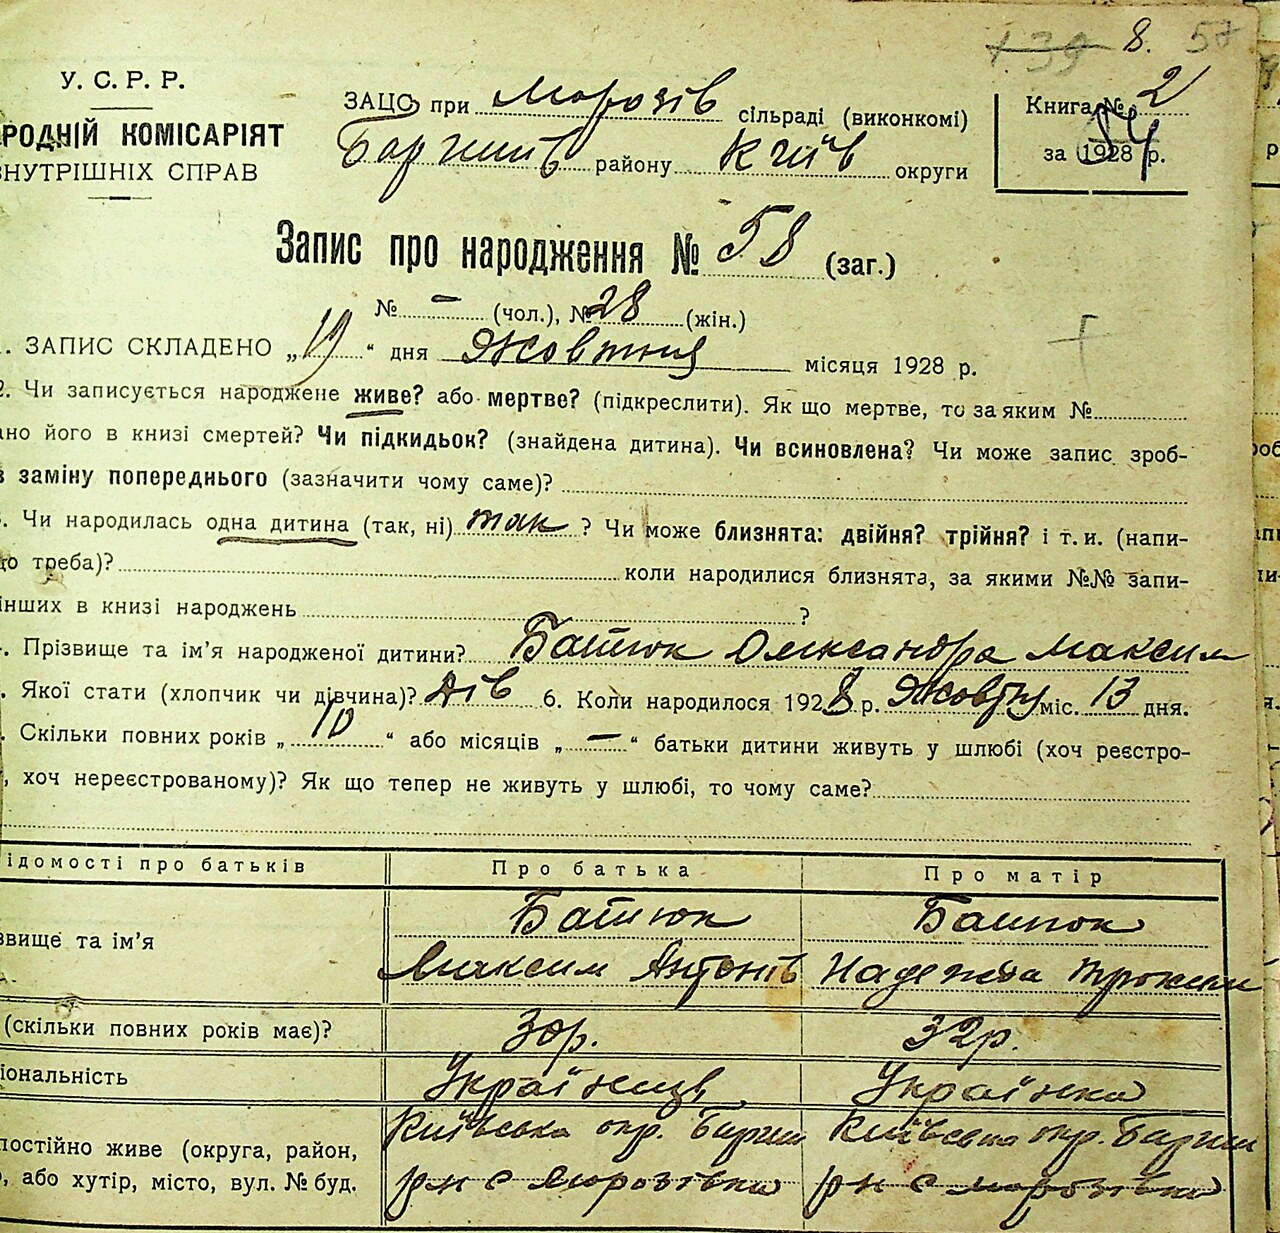 +39 8. 57
У. С. Р. Р.
РОДНІЙ КОМІСАРІЯТ
НУТРІШНІХ СПРАВ
ЗАЦС при Морозів сільраді (виконкомі)
Баришів району Київ округи
Книга № 2
за 1928 р.
54
Запис про народження № 58 (заг.)
№ — (чол.), № 28 (жін.)
1. ЗАПИС СКЛАДЕНО „19“ дня Жовтня місяця 1928 р.
2. Чи записується народжене живе? або мертве? (підкреслити). Як що мертве, то за яким №
ано його в книзі смертей? Чи підкидьок? (знайдена дитина). Чи всиновлена? Чи може запис зроб-
в заміну попереднього (зазначити чому саме)?
. Чи народилась одна дитина (так, ні) так ? Чи може близнята: двійня? трійня? і т. и. (напи-
що треба)? коли народилися близнята, за якими №№ запи-
інших в книзі народжень ?
. Прізвище та ім’я народженої дитини? Батюк Олександра Максим
. Якої стати (хлопчик чи дівчина)? дів 6. Коли народилося 1928 р. Жовтня міс. 13 дня.
. Скільки повних років „10“ або місяців „—“ батьки дитини живуть у шлюбі (хоч реєстро-
, хоч нереєстрованому)? Як що тепер не живуть у шлюбі, то чому саме?
ідомості про батьків Про батька Про матір
звище та ім’я Батюк Батюк
Максим Антонів Надежда Трохим
(скільки повних років має)? 30р. 32р.
іональність Українець Українка
постійно живе (округа, район, Київська окр. Бариш Київська окр. Бариш
, або хутір, місто, вул. № буд. рн с Морозівка рн с Морозівка